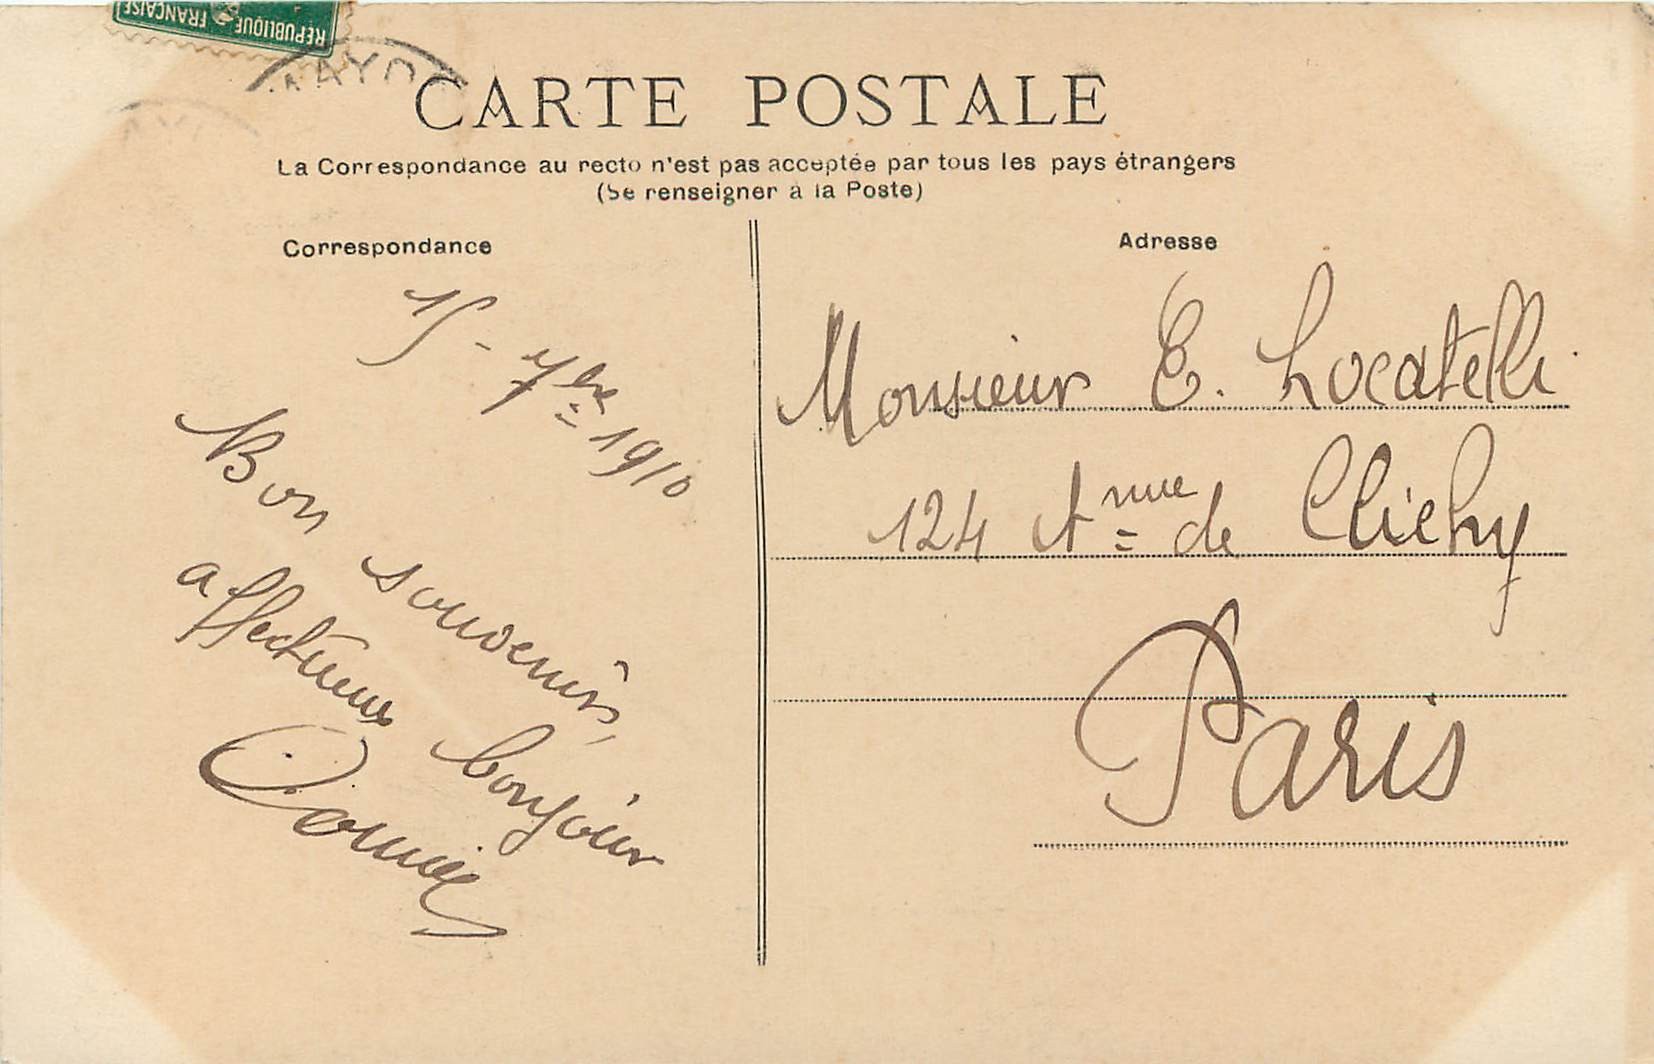 RÉPUBLIQUE FRANÇAISE
CARTE POSTALE
La Correspondance au recto n'est pas acceptée par tous les pays étrangers
(Se renseigner à la Poste)
Correspondance
Adresse
15 - 7bre 1910
Bon souvenir,
affectueux bonjour
Monsieur E. Locatelli
124 Anue de Clichy
Paris